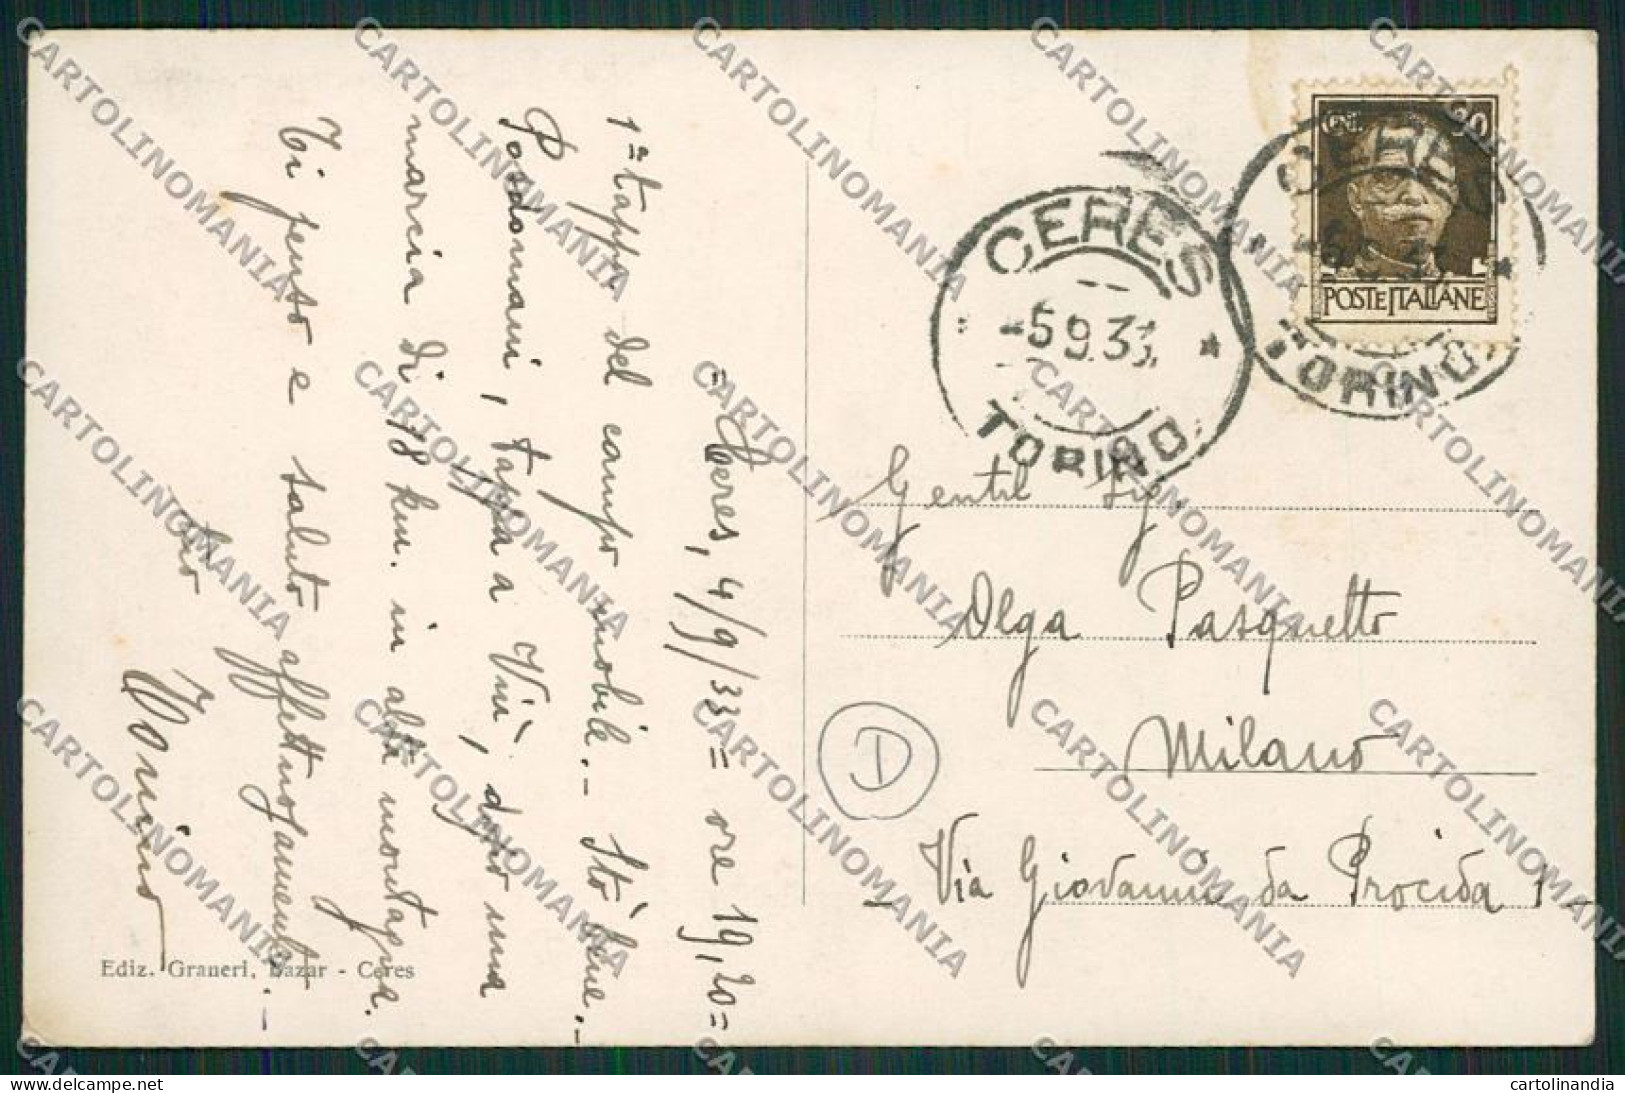 = Ceres, 4/9/33 = ore 19,20=
1ª tappa del campo mobile.- Stò bene.-
Posdomani, tappa a Viù, dopo una
marcia di 48 km. in alta montagna.
Ti penso e saluto affettuosamente.-
tuo
Tonino
Ediz. Graneri, Bazar - Ceres
CENT. 30
POSTE ITALIANE
CERES
-5.9.33
TORINO
CERES
TORINO
Gentil Sig.
Olga Pasquetto
Milano
Via Giovanni da Procida 1
D
CARTOLINOMANIA
cartolinomania.com
cartolinandia